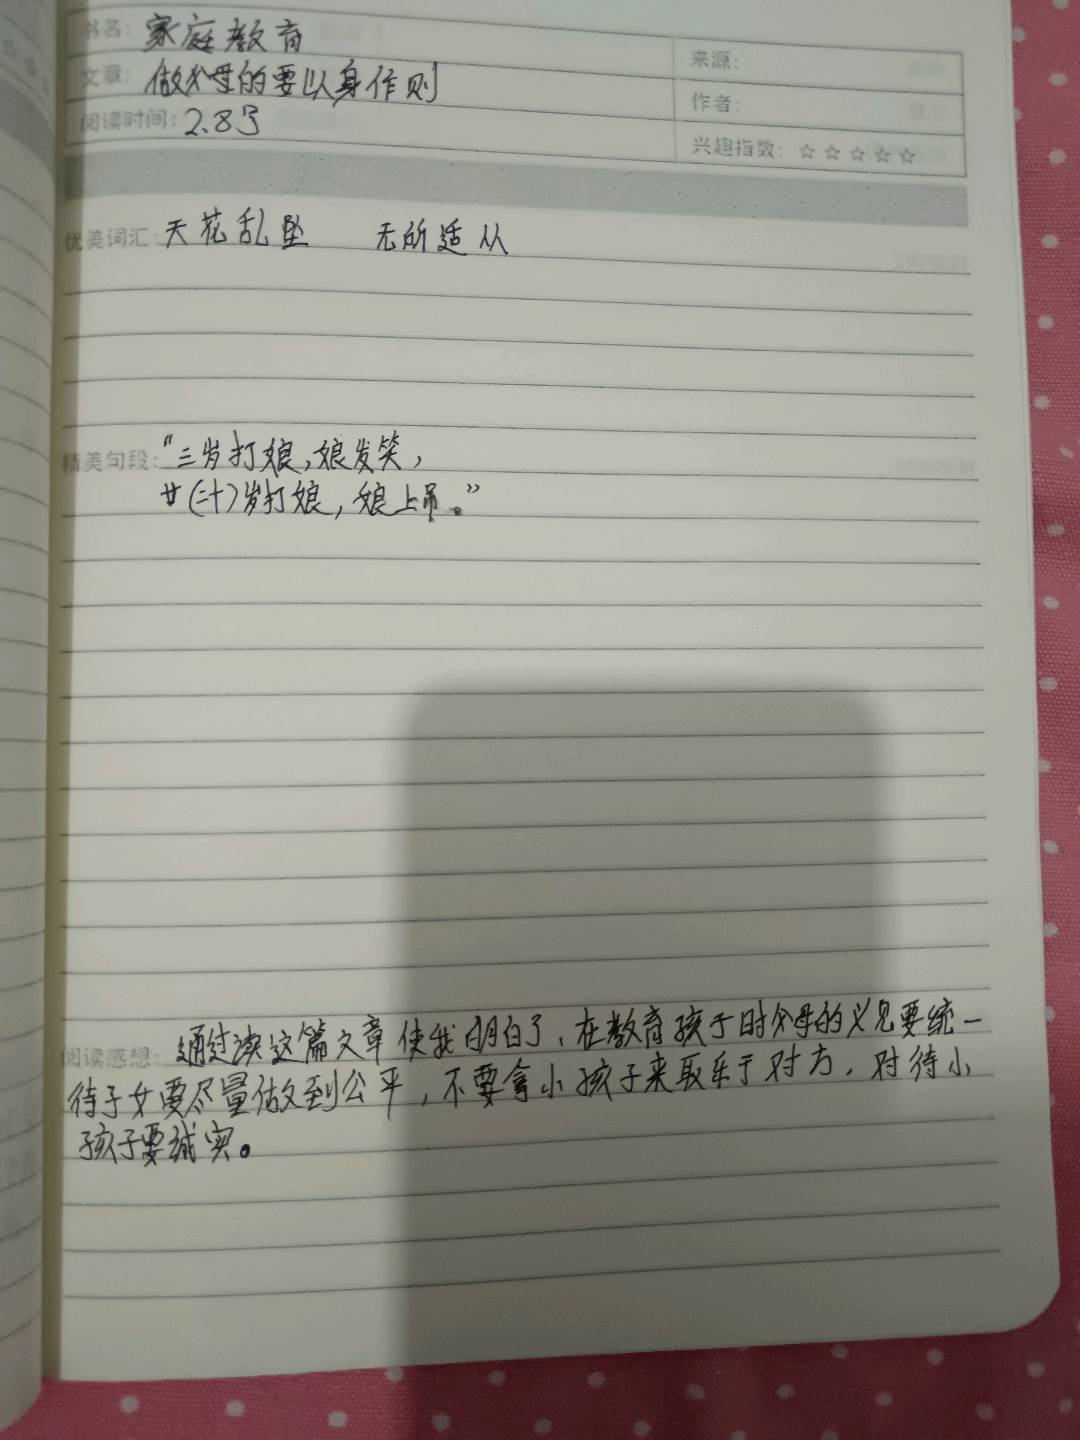 书名：家庭教育
来源：
文章：做父母的要以身作则
作者：
阅读时间：2.8号
兴趣指数：☆☆☆☆☆
优美词汇：天花乱坠 无所适从
精美句段：“三岁打娘，娘发笑，
廿（二十）岁打娘，娘上吊。”
阅读感想：通过读这篇文章使我明白了，在教育孩子时父母的义见要统一
待子女要尽量做到公平，不要拿小孩子来取乐于对方，对待小
孩子要诚实。